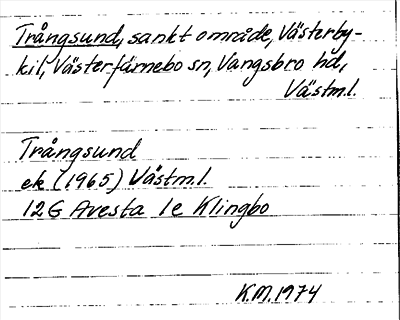 Trångsund, sankt område, Västerby-
kil, Västerfärnebo sn, Vangsbro hd,
Västm.l.
Trångsund
ek (1965) Västm.l.
12G Avesta 1e Klingbo
K.M. 1974